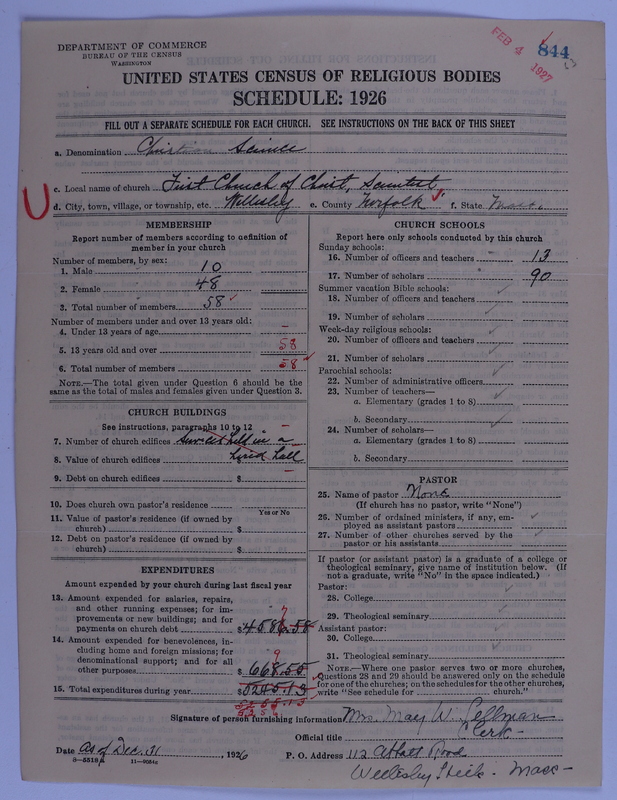 DEPARTMENT OF COMMERCE
BUREAU OF THE CENSUS
WASHINGTON
FEB 4 1927
844
UNITED STATES CENSUS OF RELIGIOUS BODIES
SCHEDULE: 1926
FILL OUT A SEPARATE SCHEDULE FOR EACH CHURCH. SEE INSTRUCTIONS ON THE BACK OF THIS SHEET
a. Denomination Christian Science
c. Local name of church First Church of Christ, Scientist
d. City, town, village, or township, etc. Wellesley e. County Norfolk f. State Mass.
MEMBERSHIP
Report number of members according to definition of
member in your church
Number of members, by sex:
1. Male 10
2. Female 48
3. Total number of members 58
Number of members under and over 13 years old:
4. Under 13 years of age –
5. 13 years old and over 58
6. Total number of members 58
NOTE.—The total given under Question 6 should be the
same as the total of males and females given under Question 3.
CHURCH BUILDINGS
See instructions, paragraphs 10 to 12
7. Number of church edifices services held in a
8. Value of church edifices hired hall
9. Debt on church edifices $ –
10. Does church own pastor's residence
Yes or No
11. Value of pastor's residence (if owned by
church) $
12. Debt on pastor's residence (if owned by
church) $
EXPENDITURES
Amount expended by your church during last fiscal year
13. Amount expended for salaries, repairs,
and other running expenses; for im-
provements or new buildings; and for
payments on church debt $ 4586.58
14. Amount expended for benevolences, in-
cluding home and foreign missions; for
denominational support; and for all
other purposes $ 668.55
15. Total expenditures during year $ 5245.13
CHURCH SCHOOLS
Report here only schools conducted by this church
Sunday schools:
16. Number of officers and teachers 13
17. Number of scholars 90
Summer vacation Bible schools:
18. Number of officers and teachers
19. Number of scholars
Week-day religious schools:
20. Number of officers and teachers
21. Number of scholars
Parochial schools:
22. Number of administrative officers
23. Number of teachers—
a. Elementary (grades 1 to 8)
b. Secondary
24. Number of scholars—
a. Elementary (grades 1 to 8)
b. Secondary
PASTOR
25. Name of pastor None
(If church has no pastor, write "None")
26. Number of ordained ministers, if any, em-
ployed as assistant pastors
27. Number of other churches served by the
pastor or his assistants
If pastor (or assistant pastor) is a graduate of a college or
theological seminary, give name of institution below. (If
not a graduate, write "No" in the space indicated.)
Pastor:
28. College
29. Theological seminary
Assistant pastor:
30. College
31. Theological seminary
NOTE.—Where one pastor serves two or more churches,
Questions 28 and 29 should be answered only on the schedule
for one of the churches; on the schedules for the other churches,
write "See schedule for church."
Signature of person furnishing information Mrs. Mary W. Pellman
Official title Clerk
Date as of Dec. 31, 1926 P. O. Address 112 Abbott Road
Wellesley Hills - Mass -